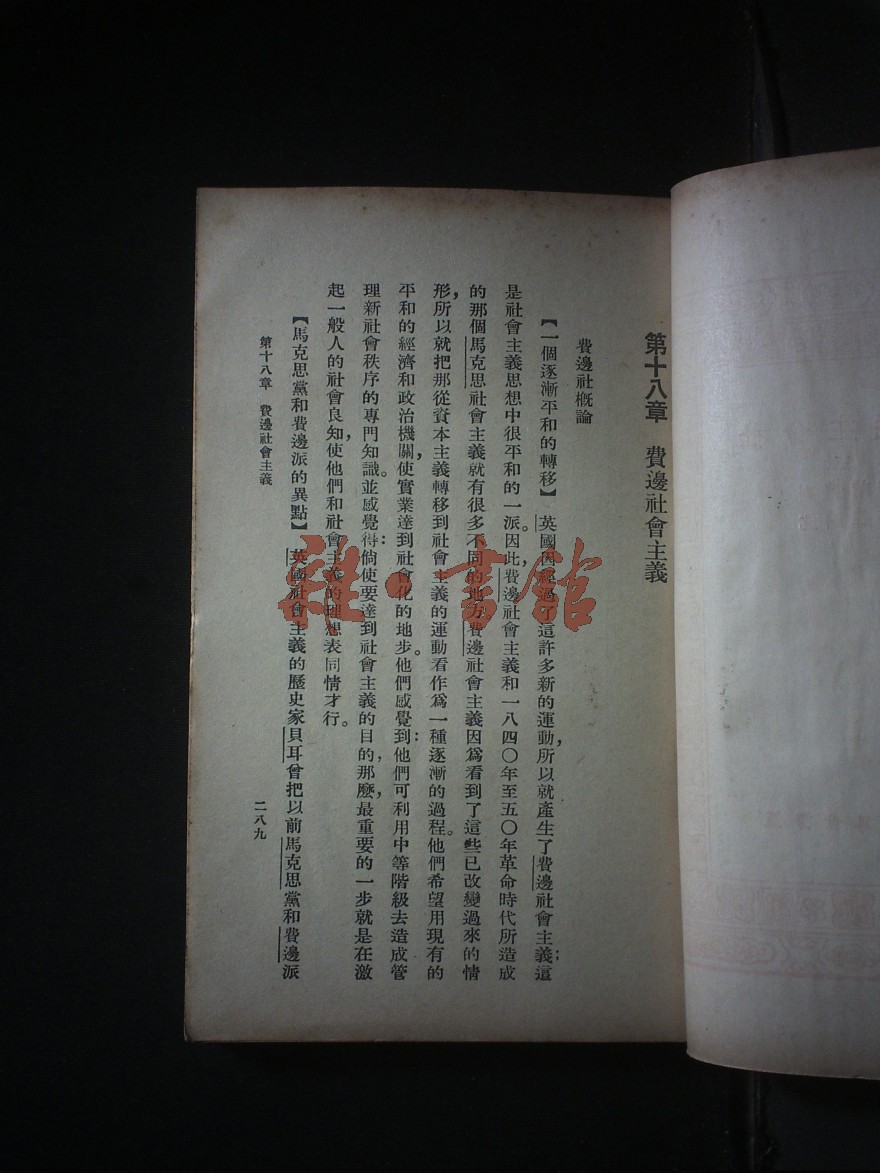 第十八章　費邊社會主義
費邊社概論
【一個逐漸平和的轉移】英國因經過了這許多新的運動，所以就產生了費邊社會主義；這
是社會主義思想中很平和的一派。因此，費邊社會主義和一八四〇年至五〇年革命時代所造成
的那個馬克思社會主義就有很多不同的地方。費邊社會主義因爲看到了這些已改變過來的情
形，所以就把那從資本主義轉移到社會主義的運動看作爲一種逐漸的過程。他們希望用現有的
平和的經濟和政治機關，使實業達到社會化的地步。他們感覺到：他們可利用中等階級去造成管
理新社會秩序的專門知識。並感覺得：倘使要達到社會主義的目的，那麼，最重要的一步就是在激
起一般人的社會良知，使他們和社會主義的理想表同情才行。
【馬克思黨和費邊派的異點】英國社會主義的歷史家貝耳曾把以前馬克思黨和費邊派
第十八章　費邊社會主義
二八九
雜·書館